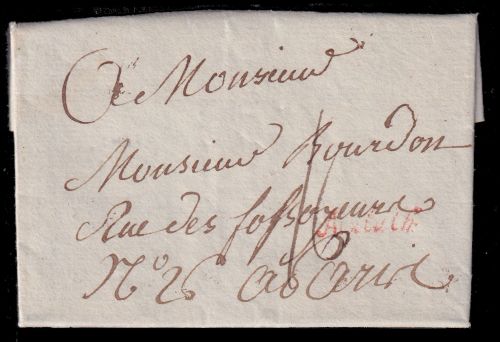 A Monsieur
Monsieur Bourdon
Rue des fossoyeurs
N° 26 a Paris